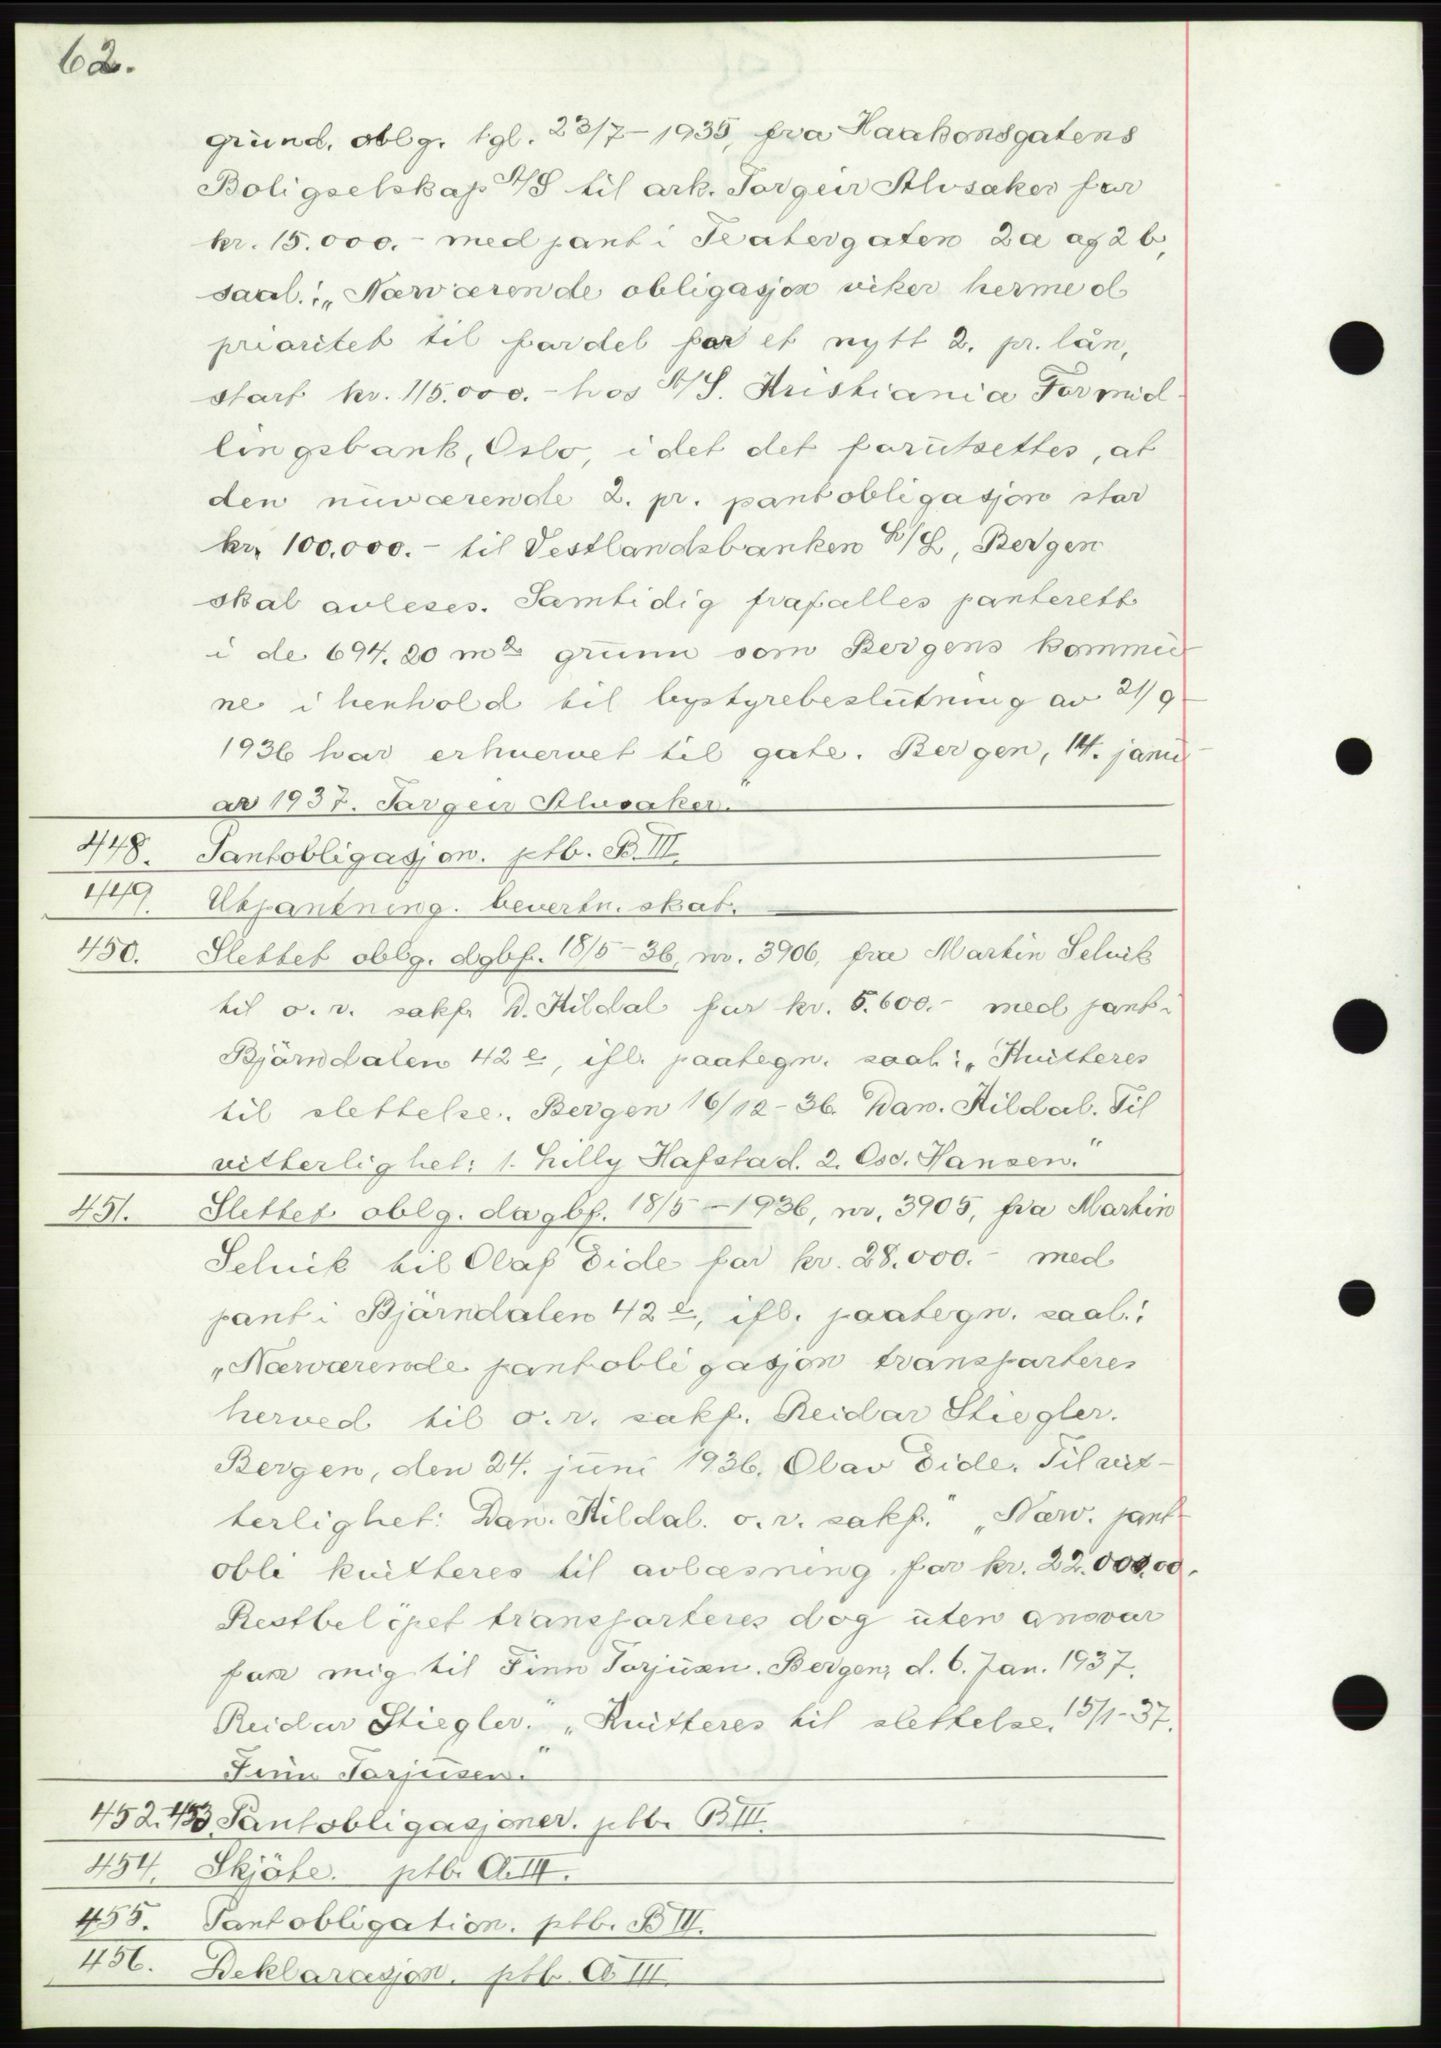 62.
grund. oblg. tgl. 23/7-1935, fra Haakonsgatens
Boligselskap A/S til ark. Torgeir Alvsaker for
kr. 15.000.- med pant i Teatergaten 2a og 2b,
saal.: „Nærværende obligasjon viker hermed
prioritet til fordel for et nytt 2. pr. lån,
stort kr. 115.000.- hos A/S. Kristiania Formid-
lingsbank, Oslo, idet det forutsettes, at
den nuværende 2. pr. pantobligasjon stor
kr. 100.000.- til Vestlandsbanken L/L, Bergen
skal avleses. Samtidig frafalles panterett
i de 694.20 m2 grunn som Bergens kommu-
ne i henhold til bystyrebeslutning av 21/9-
1936 har erhvervet til gate. Bergen, 14. janu-
ar 1937. Torgeir Alvsaker."
448. Pantobligasjon. ptb. B.III.
449. Utpantning. bevertn. skat.
450. Slettet oblg. dgbf. 18/5-36, nr. 3906, fra Martin Selvik
til o. r. sakf. D. Kildal for kr. 5.600.- med pant i
Bjørndalen 42 e, ifl. paategn. saal.: „Kvitteres
til slettelse. Bergen 16/12-36. Dan. Kildal. Til
vitterlighet: 1. Lilly Hafstad. 2. Osc. Hansen."
451. Slettet oblg. dagbf. 18/5-1936, nr. 3905, fra Martin
Selvik til Olaf Eide for kr. 28.000.- med
pant i Bjørndalen 42 e, ifl. paategn. saal.:
„Nærværende pantobligasjon transporteres
herved til o. r. sakf. Reidar Stiegler.
Bergen, den 24. juni 1936. Olav Eide. Til vit-
terlighet: Dan. Kildal. o. r. sakf." „Nærv. pant-
obli kvitteres til avlæsning for kr. 22.000.00.
Restbeløpet transporteres dog uten ansvar
for mig til Finn Torjusen. Bergen, d. 6. Jan. 1937.
Reidar Stiegler." „Kvitteres til slettelse. 15/1-37.
Finn Torjusen."
452.-453. Pantobligasjoner. ptb. B III.
454. Skjöte. ptb. A.III.
455. Pantobligation. ptb. B III.
456. Deklarasjon. ptb. A III.